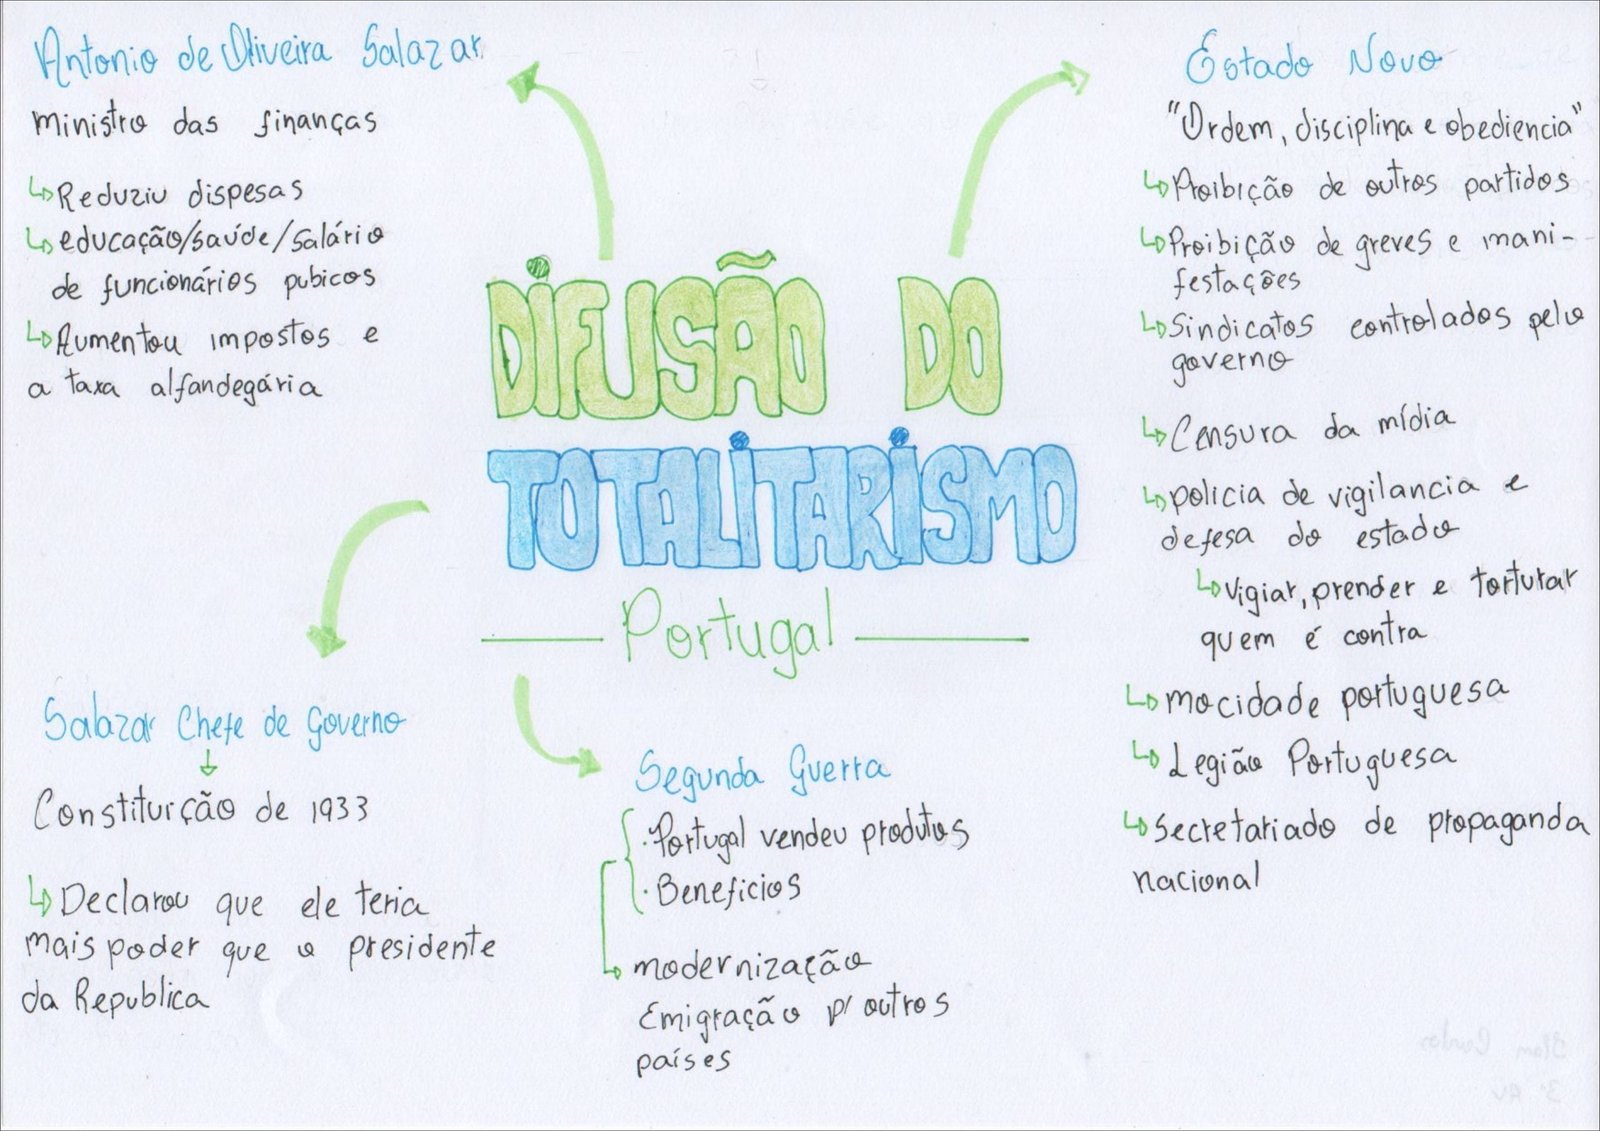 Antonio de Oliveira Salazar
ministro das finanças
Reduziu dispesas
educação/saúde/salário
de funcionários pubicos
Aumentou impostos e
a taxa alfandegária
Estado Novo
"Ordem, disciplina e obediencia"
Proibição de outros partidos
Proibição de greves e mani-
festações
Sindicatos controlados pelo
governo
Censura da mídia
policia de vigilancia e
defesa do estado
Vigiar, prender e torturar
quem é contra
mocidade portuguesa
Legião Portuguesa
Secretariado de propaganda
nacional
DIFUSÃO DO
TOTALITARISMO
Portugal
Salazar Chefe de Governo
Constituição de 1933
Declarou que ele teria
mais poder que o presidente
da Republica
Segunda Guerra
· Portugal vendeu produtos
· Beneficios
modernização
Emigração p/ outros
países